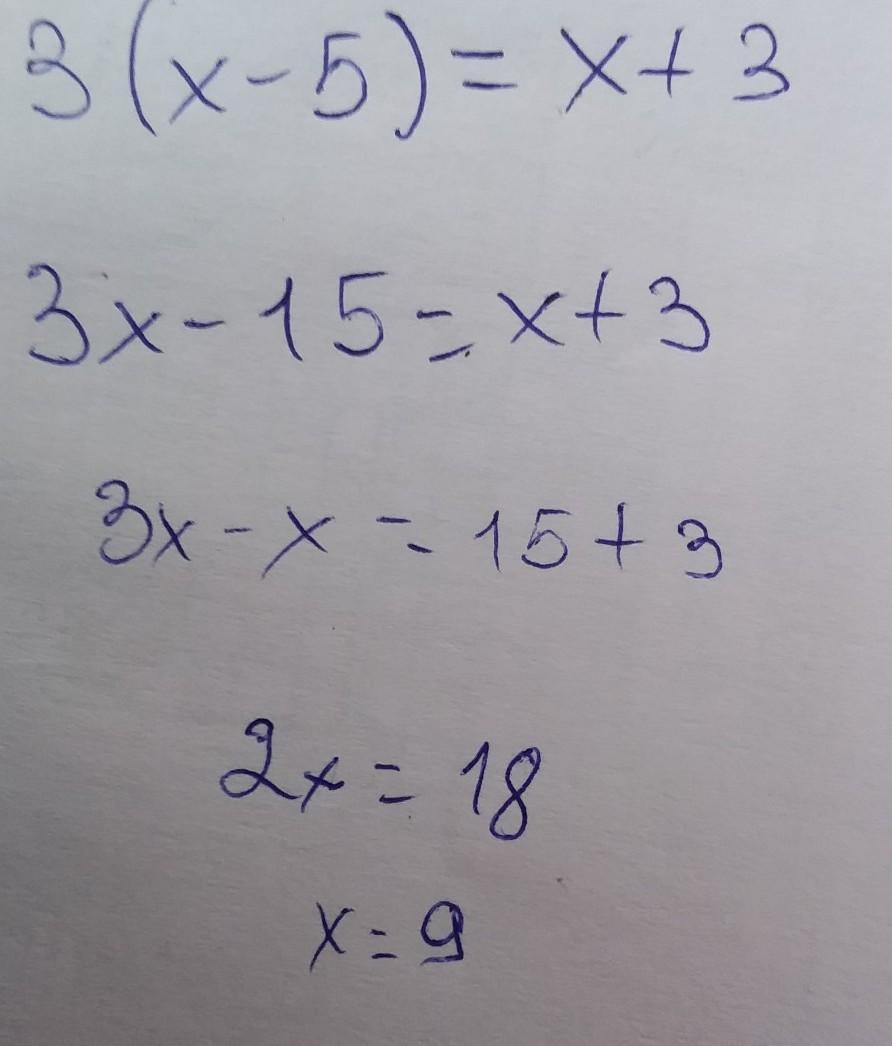 3(x-5)=x+3
3x-15=x+3
3x-x=15+3
2x=18
x=9